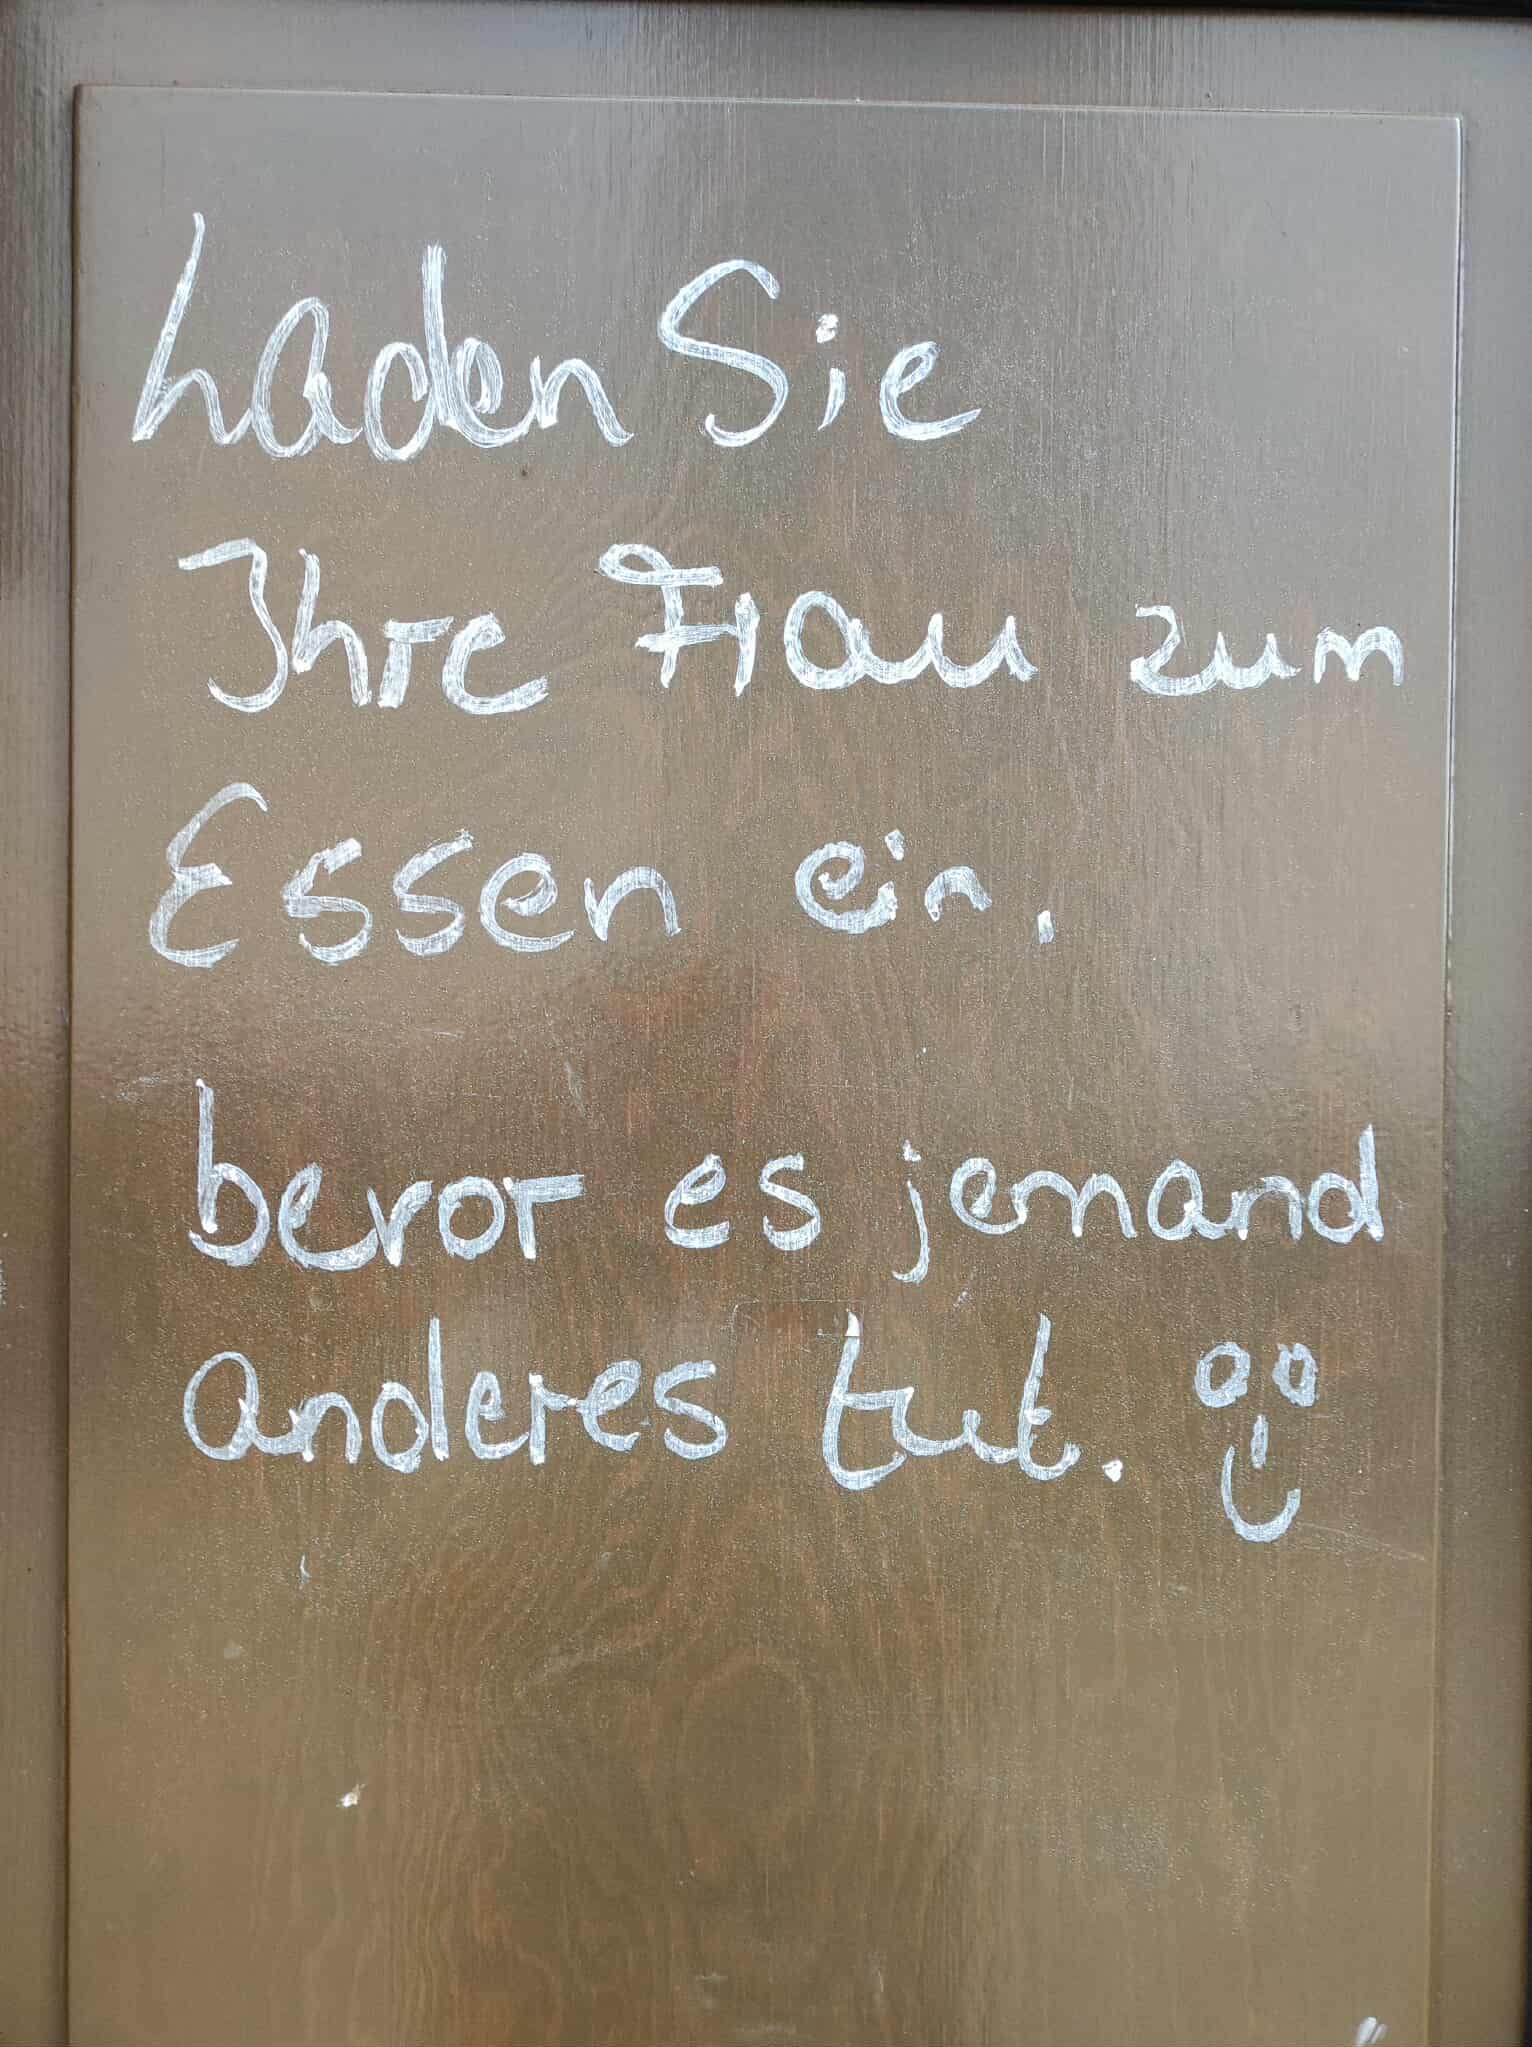 Laden Sie
Ihre Frau zum
Essen ein,
bevor es jemand
anderes tut.